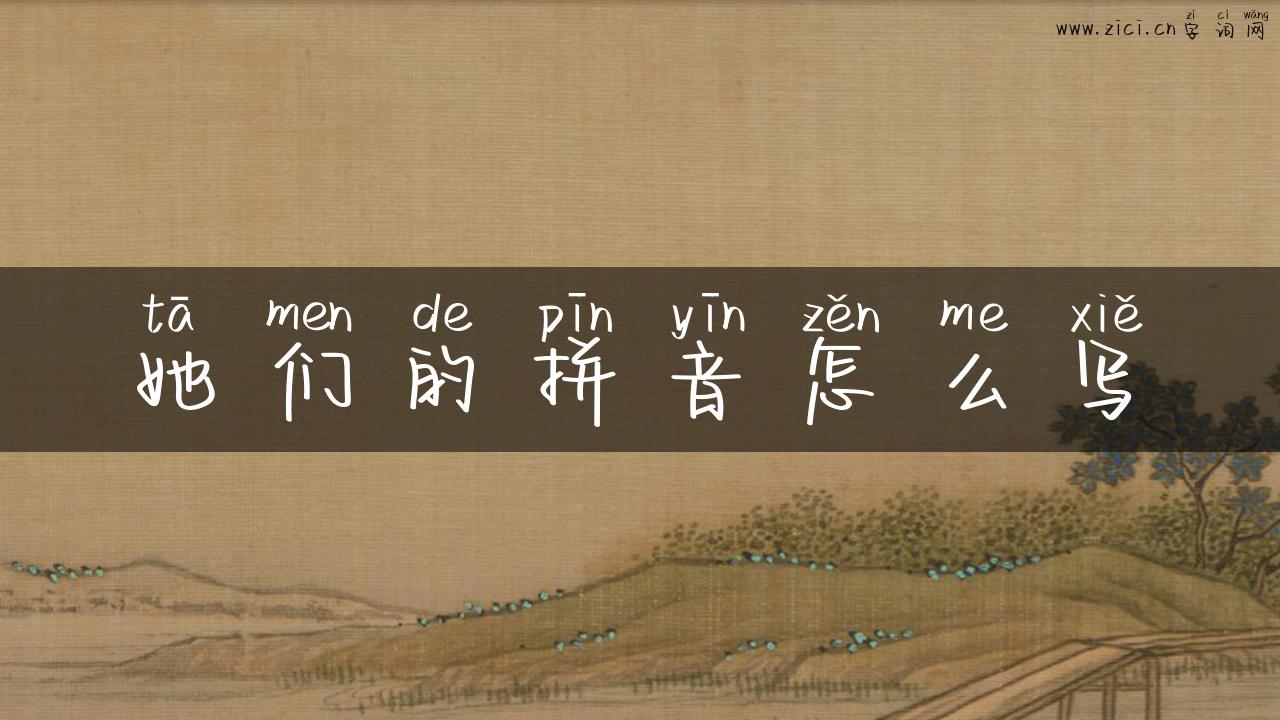 zì cí wǎng
www.zici.cn字词网
tā men de pīn yīn zěn me xiě
她们的拼音怎么写